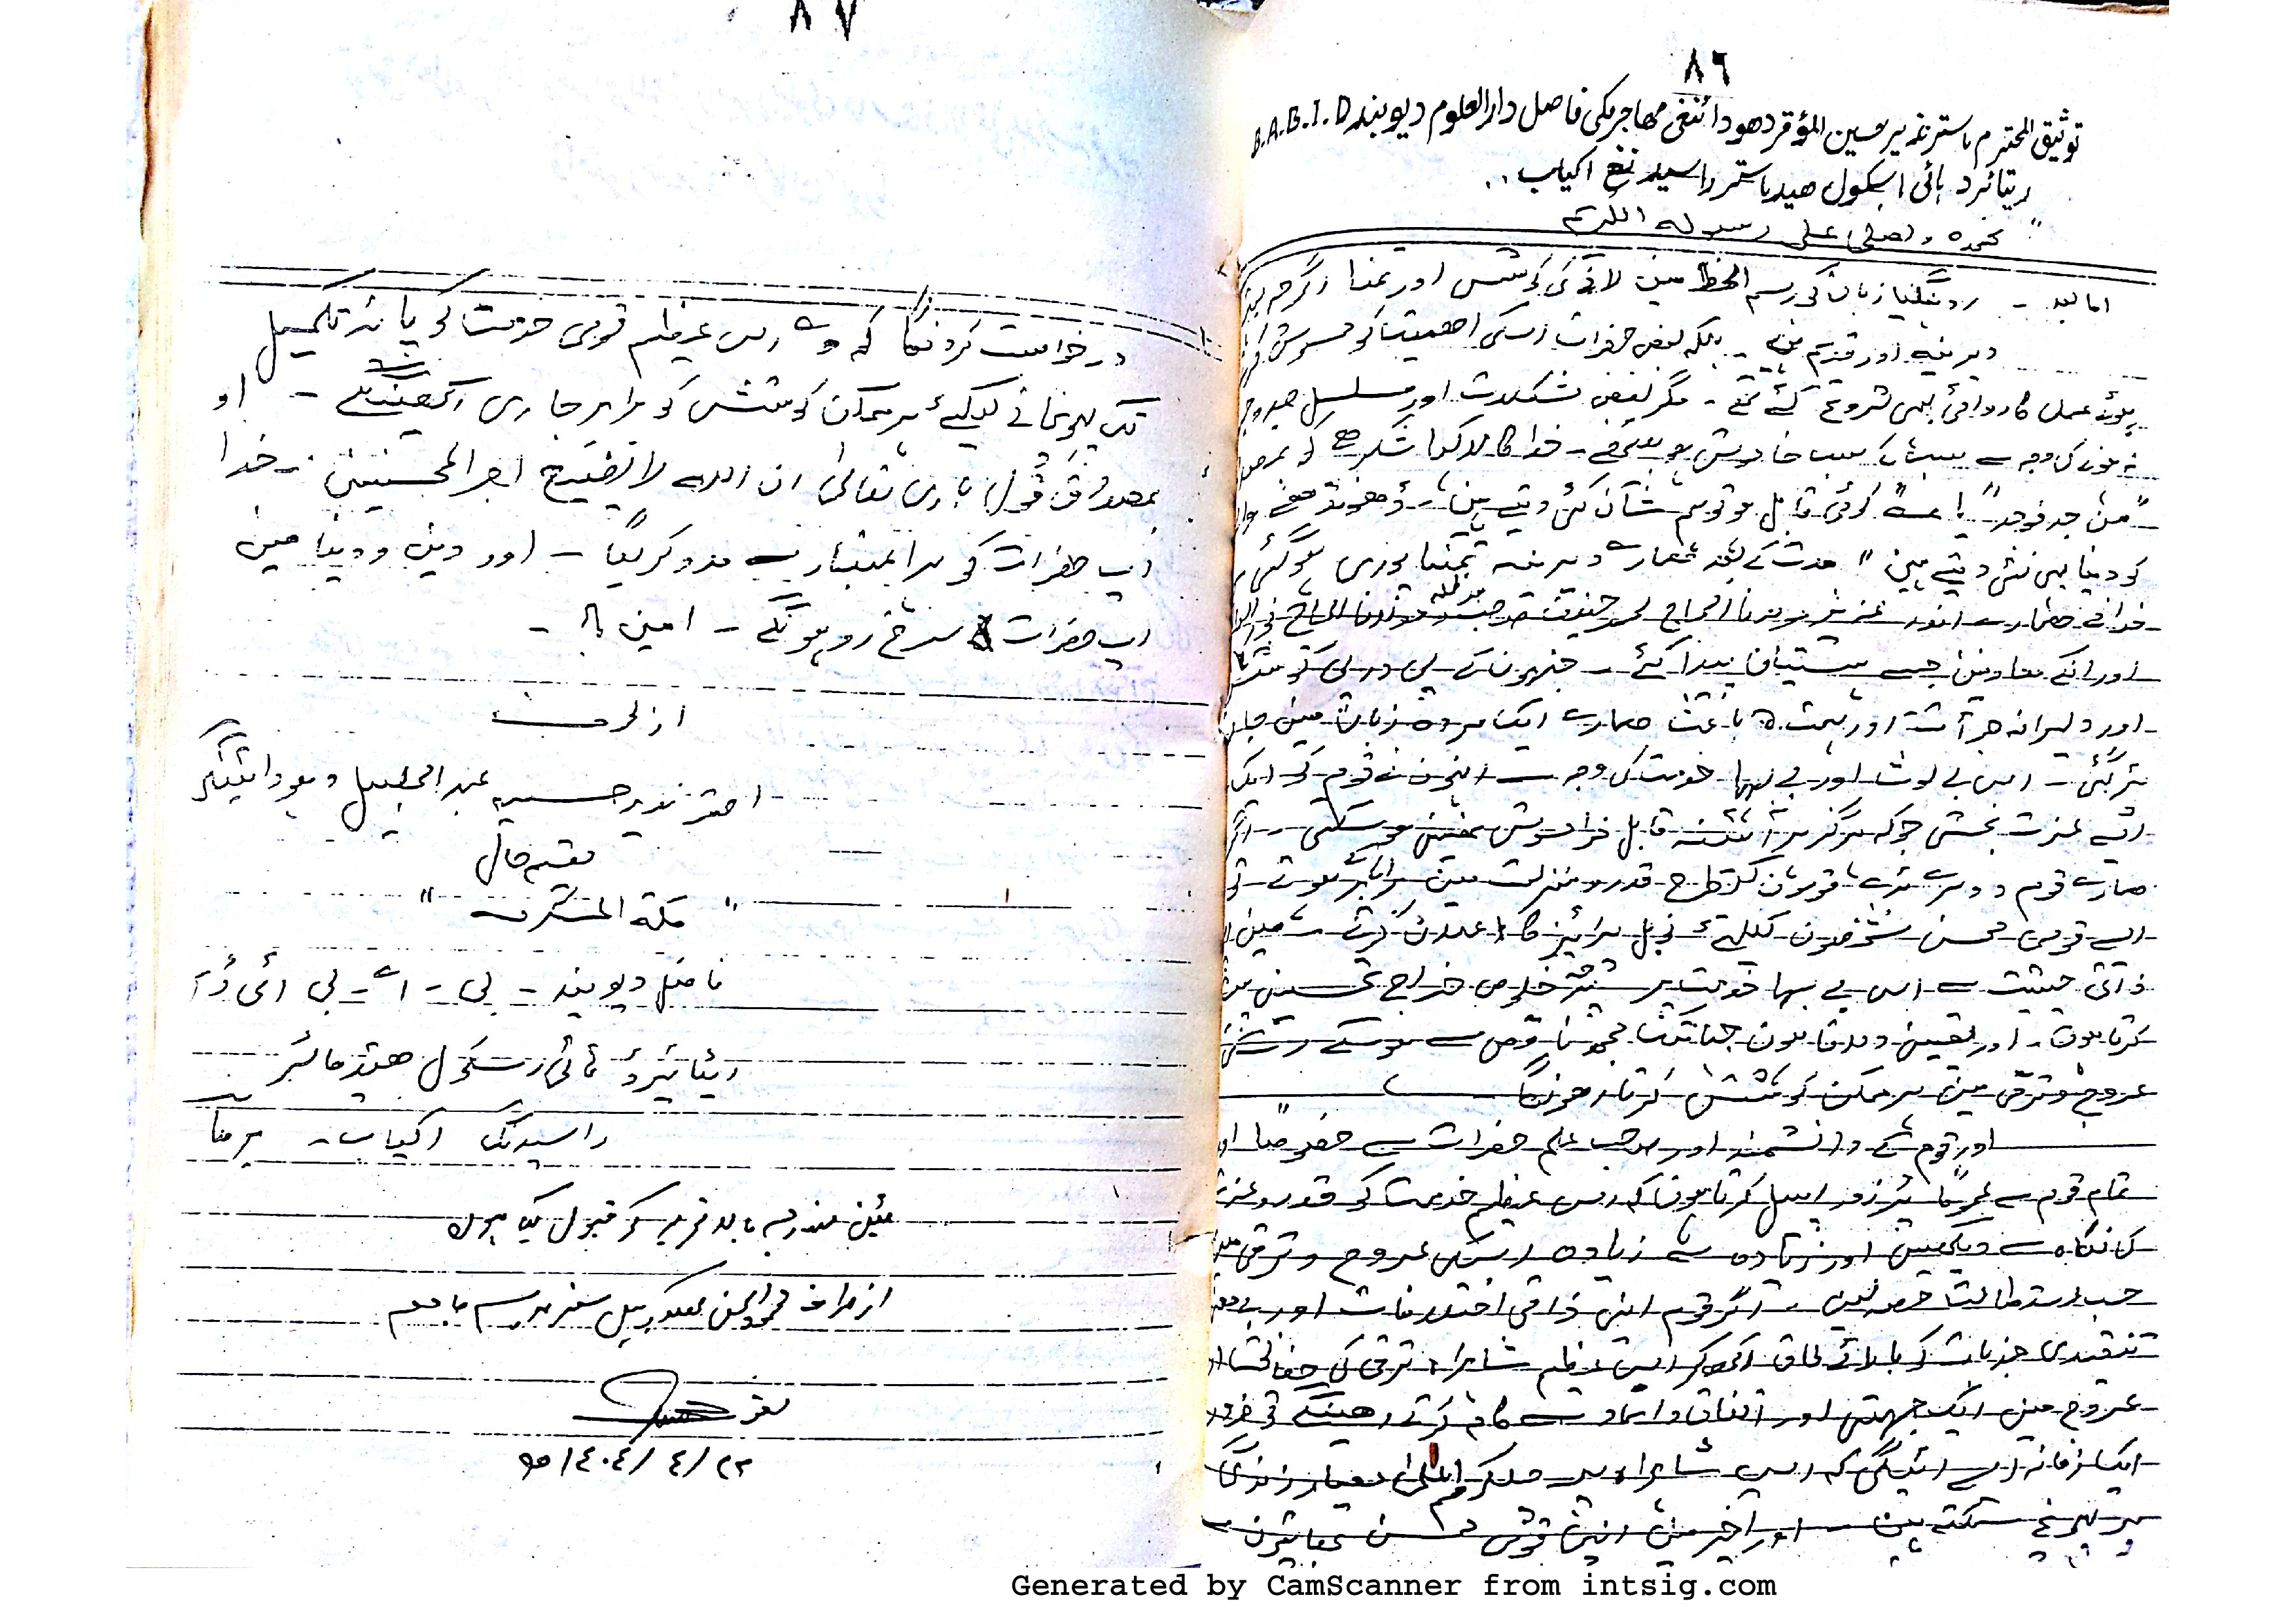 ٨٦
توثیق المحترم ماستر نذیر حسین المؤقر دھودائنغی مھاجر مکی فاصل دارالعلوم دیوبند B.A.B.I.D
ریتائرد ہائی اسکول ھید ماستر راسیدنغ اکیاب ..
نحمدہ ونصلی علی رسولہ الکریم
اما بعد ۔ روینگیا زبان کی رسم الخط مین لانے کی کوشس اور تمنا اگرچہ
دیرینہ اور قدیم ہے ۔ بلکہ بعض حضرات اسکی اھمیت کو محسوس
ہوئے عملی کاروائی بھی شروع کئے تھے ۔ مگر بعض مشکلات اور مسلسل جدوجہد
نہ ہونے کی وجہ سے سب کے سب خاموش ہو گئے ۔ خدا کا لاکھ لاکھ شکر ھے کہ
" من جد فوجد " یا کوئی قابل ہو تو ہم شان کئی دیتے ہین ، ڈھونڈھنے والے
کو دنیا بھی نئی دیتے ہین " مدت کے بعد ھمارے دیرینہ تمنا پوری ہوگئی
خدا نے ھمارے اندر عزیز مولانا الحاج محمد حنیف صاحب مدظلہ مولانا الحاج
اور انکے معاونین جیسے ہستیان پیدا کئے ۔ جنہون نے پے در پے کوشش
اور دلیرانہ جرأت اور ہمت کا باعث ھمارے ایک مردہ زبان مین جان
پڑگئی ۔ اس بے لوث اور بے بہا خدمت کی وجہ سے انہون نے قوم کو ایک
ایسے عزت بخشی جو کہ ہرگز ہر آئنہ قابل فراموش نہین ہو سکتی ۔ اگر
ھمارے قوم دوسرے بڑے قومون کیطرح قدر و منزلت مین برابر ہوتے تو
ایسے قومی محسن شخصون کیلئے نوبل پرائیز کا اعلان کرتے ۔ مین
ذاتی حیثیت سے اس بے بہا خدمت پر خلوص خراج تحسین پیش
کرتا ہون ۔ اور یقین دلاتا ہون جہانتک مجھ ناقص سے ہوسکے
عروج و ترقی مین ہر ممکن کوشش کرتا رھونگا ۔
اور قوم کے دانشمند اور صاحب علم حضرات سے خصوصاً اور
تمام قوم سے عموماً پر زور اپیل کرتا ہون کہ اس عظیم خدمت کو قدر و عزت
کی نگاہ سے دیکھین اور زیادہ سے زیادہ اسکی عروج و ترقی مین
حسب استطاعت حصہ لین ۔ اگر قوم اپنی ذاتی اختلافات اور بے معنی
تنقیدی جذبات کو بالائے طاق رکھکر اس عظیم شاہراہ ترقی کی حفاظت اور
عروج مین ایک جہتی اور اتفاق و اتحاد سے کام کرتے رھینگے تو ضرور
ایک زمانہ ایسے آئیگی کہ اس شاہراہ پر چلکر ہم اعلی معیار زندگی
پر پہونچ سکتے ہین ۔ اور آخر مین اپنی قومی محسن بھائیون سے
٨٧
درخواست کرونگا کہ وے اس عظیم قومی خدمت کو پایۂ تکمیل
تک پہونچانے کیلیے ہر ممکن کوشش کو برابر جاری رکھینگے ۔ اور
بمصداق قول باری تعالیٰ ان اللہ لا یضیع اجر المحسنین ۔ خدا
آپ حضرات کو ہر اعتبار سے مدد کریگا ۔ اور دین و دنیا مین
آپ حضرات سرخ رو ہونگے ۔ امین !! ۔
از طرف
احقر نذیر حسین عبد الجلیل دہودائنگی
مقیم حال
" مکة المشرفہ "
فاضل دیوبند ۔ بی ۔ اے ۔ بی ائی ڈ
ریٹائیرڈ ہائی اسکول ھیڈ ماسٹر
راسیدنگ اکیاب ۔ برما
مئین مندرجہ بالا تحریر کو قبول کیا ہون
از طرف
٢٢ / ٤ / ١٤٠٤ ھ
Generated by CamScanner from intsig.com